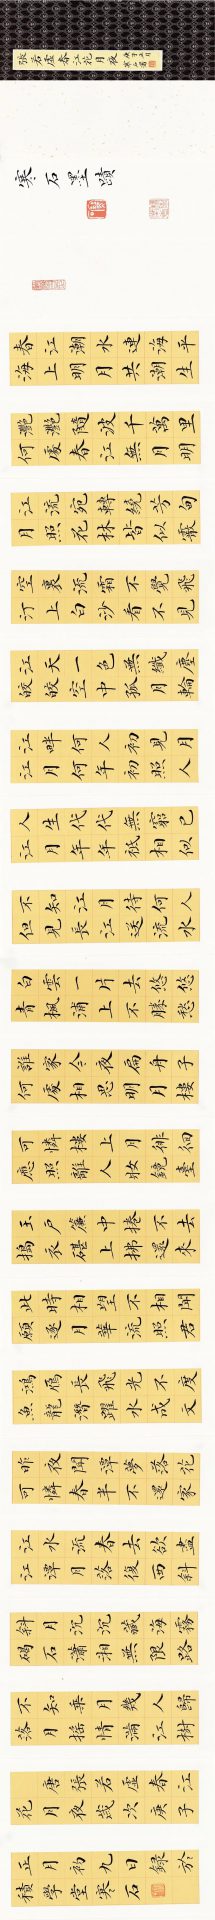 張若虛春江花月夜
寒石墨蹟
春江潮水連海平
海上明月共潮生
灩灩隨波千萬里
何處春江無月明
江流宛轉繞芳甸
月照花林皆似霰
空裏流霜不覺飛
汀上白沙看不見
江天一色無纖塵
皎皎空中孤月輪
江畔何人初見月
江月何年初照人
人生代代無窮已
江月年年祗相似
不知江月待何人
但見長江送流水
白雲一片去悠悠
青楓浦上不勝愁
誰家今夜扁舟子
何處相思明月樓
可憐樓上月徘徊
應照離人妝鏡臺
玉戶簾中捲不去
搗衣砧上拂還來
此時相望不相聞
願逐月華流照君
鴻雁長飛光不度
魚龍潛躍水成文
昨夜閑潭夢落花
可憐春半不還家
江水流春去欲盡
江潭月落復西斜
斜月沉沉藏海霧
碣石瀟湘無限路
不知乘月幾人歸
落月搖情滿江樹
唐張若虛春江
花月夜歲次庚子
正月初九日錄於
積學堂寒石